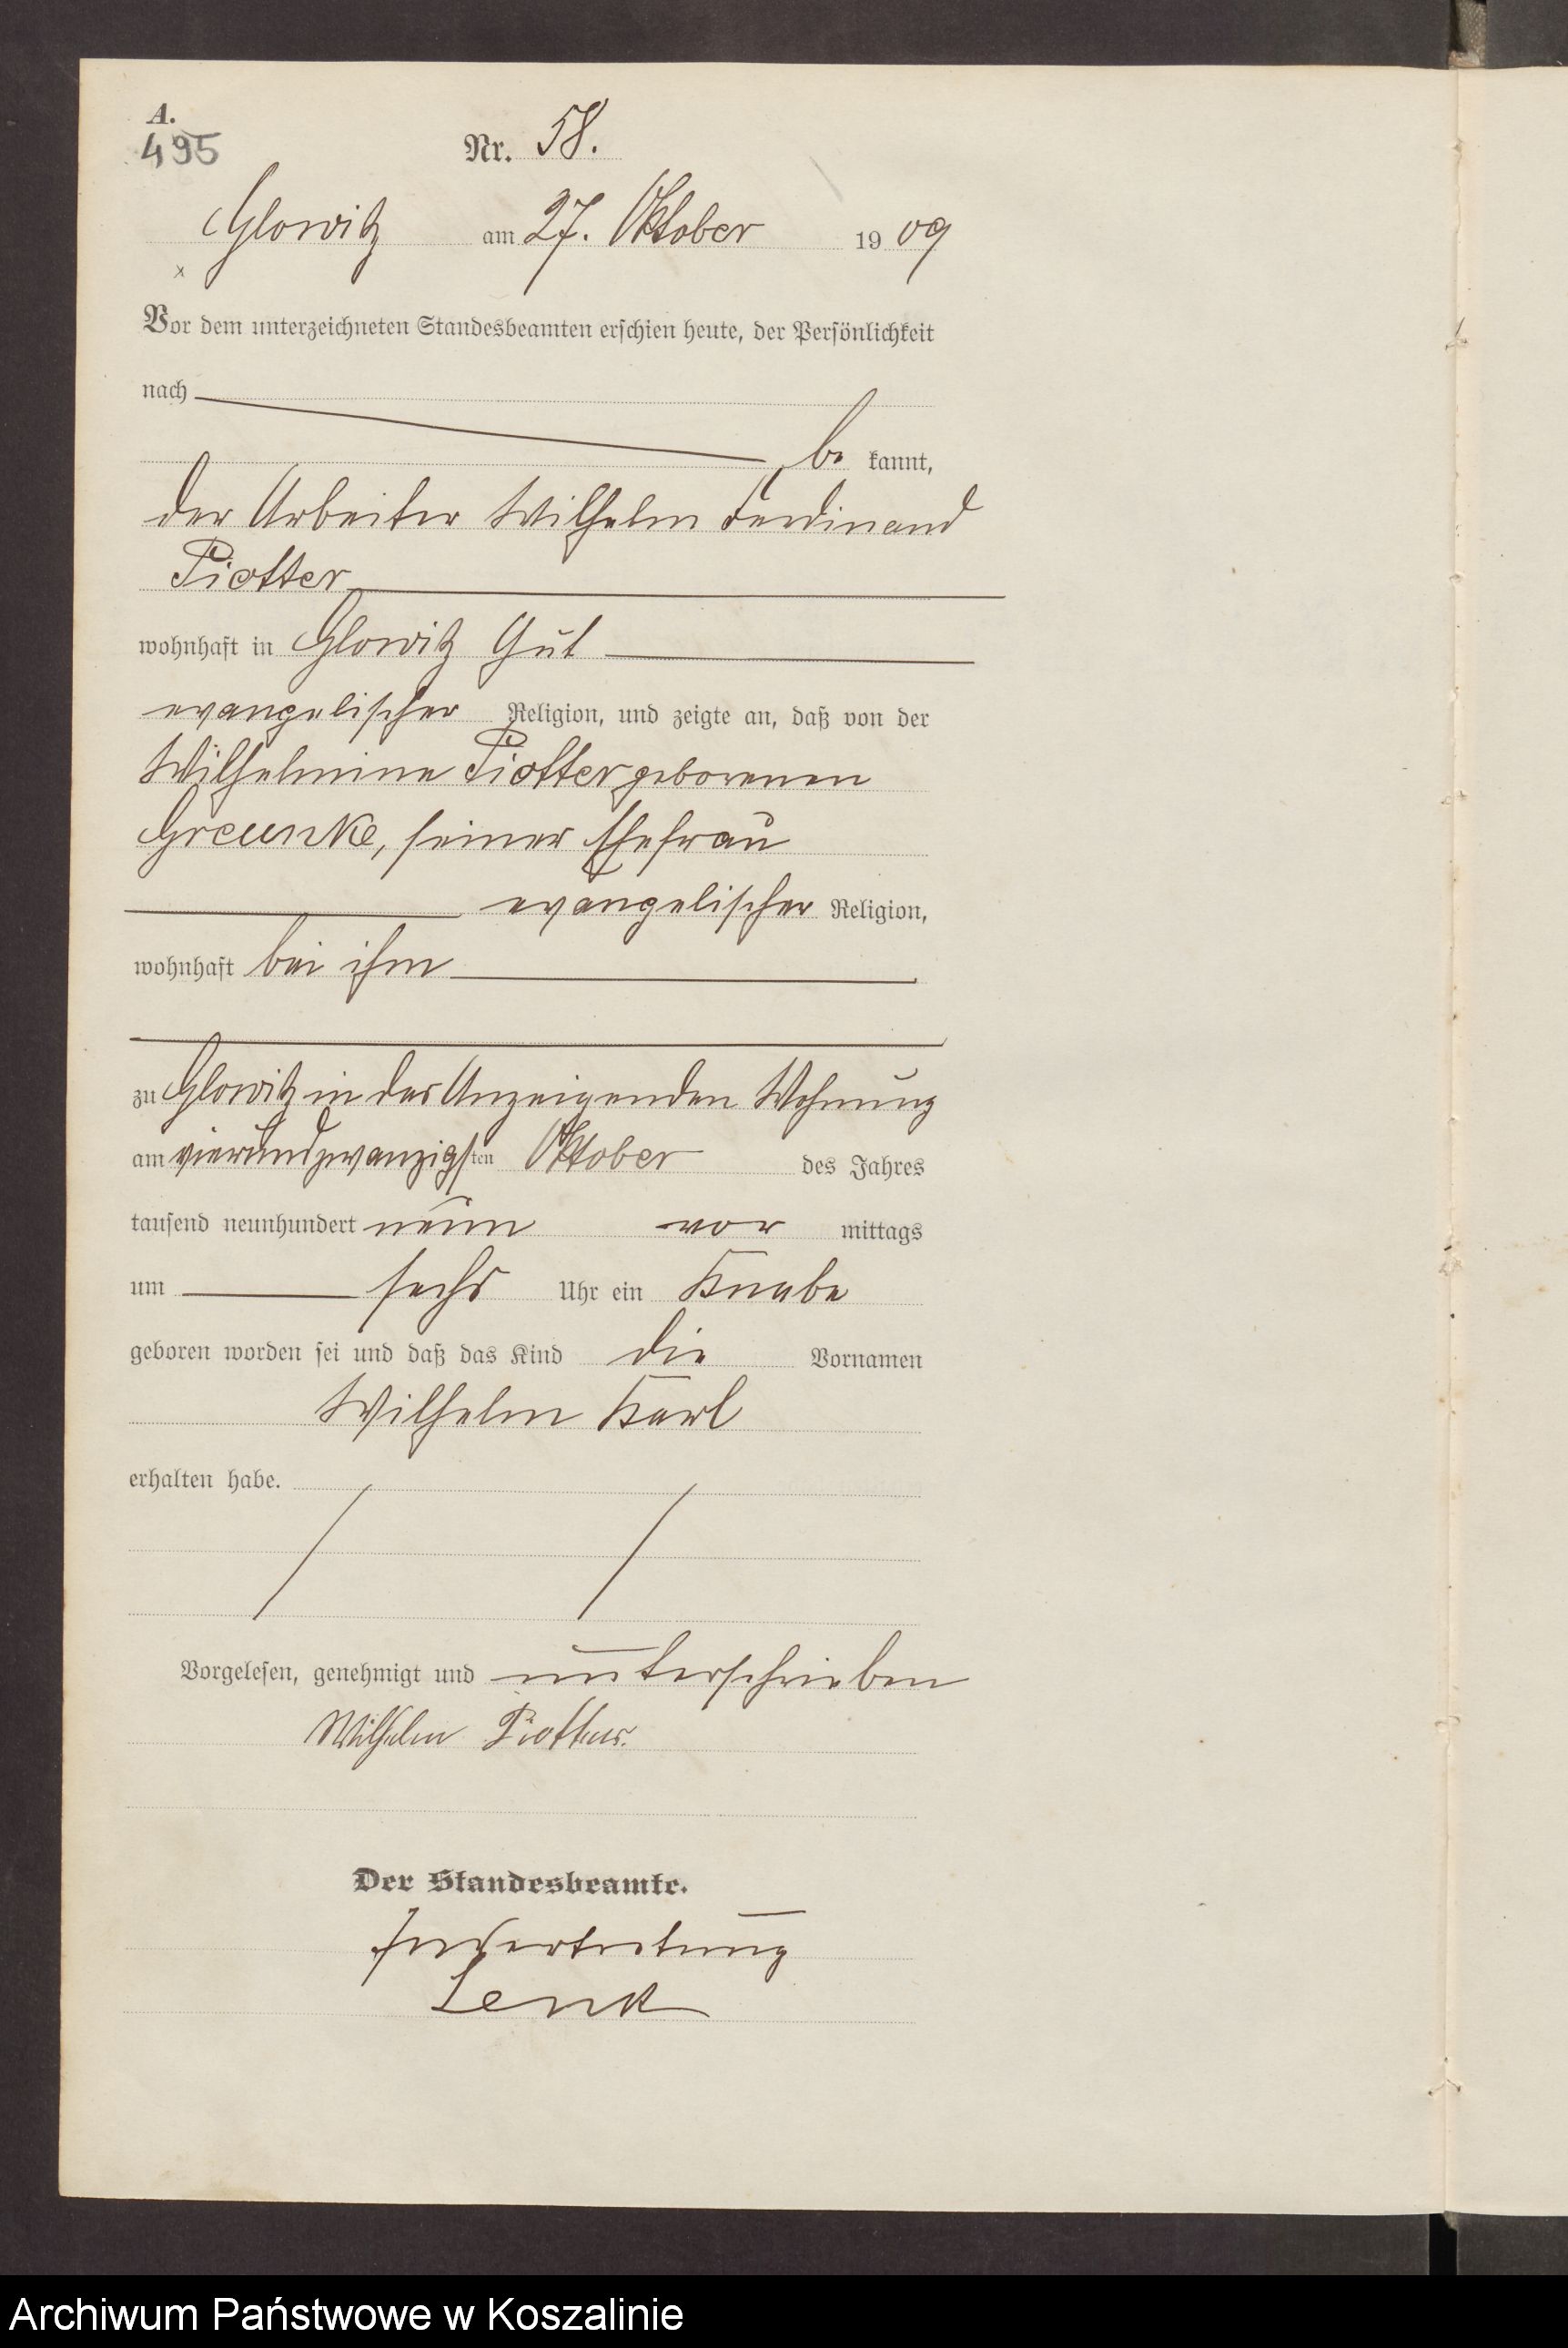 A.
495
Nr. 58.
Glowitz am 27. Oktober 1909
Vor dem unterzeichneten Standesbeamten erschien heute, der Persönlichkeit
nach
be kannt,
der Arbeiter Wilhelm Ferdinand
Piotter
wohnhaft in Glowitz Gut
evangelischer Religion, und zeigte an, daß von der
Wilhelmine Piotter geborenen
Greunke, seiner Ehefrau
evangelischer Religion,
wohnhaft bei ihm
zu Glowitz in des Anzeigenden Wohnung
am vierundzwanzigsten Oktober des Jahres
tausend neunhundert neun vor mittags
um sechs Uhr ein Knabe
geboren worden sei und daß das Kind die Vornamen
Wilhelm Karl
erhalten habe.
Vorgelesen, genehmigt und unterschrieben
Wilhelm Piotter.
Der Standesbeamte.
In Vertretung
Lenk
Archiwum Państwowe w Koszalinie